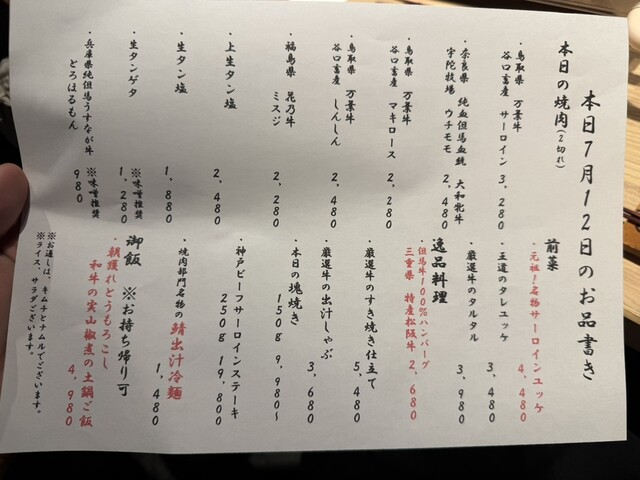 本日7月12日のお品書き
本日の焼肉(2切れ)
・鳥取県 万葉牛
谷口畜産 サーロイン 3,280
・奈良県 純血但馬血統 大和牝牛
宇陀牧場 ウチモモ 2,480
・鳥取県 万葉牛
谷口畜産 マキロース 2,280
・鳥取県 万葉牛
谷口畜産 しんしん 2,480
・福島県 花乃牛
ミスジ 2,280
・上生タン塩 2,480
・生タン塩 1,880
・生タンゲタ ※味噌推奨
1,280
・兵庫県純但馬うすなが牛
とろほるもん ※味噌推奨
980
前菜
・元祖!名物サーロインユッケ
4,480
・王道のタレユッケ
3,480
・厳選牛のタルタル
3,980
逸品料理
・但馬牛100%ハンバーグ
三重県 特産松阪牛 2,680
・厳選牛のすき焼き仕立て
5,480
・厳選牛の出汁しゃぶ
3,680
・本日の塊焼き
150g 9,980~
・神戸ビーフサーロインステーキ
250g 19,800
・焼肉部門名物の鯖出汁冷麺
1,480
御飯 ※お持ち帰り可
・朝獲れとうもろこし
和牛の実山椒煮の土鍋ご飯
4,980
※お通しは、キムチとナムルでございます。
※ライス、サラダございます。